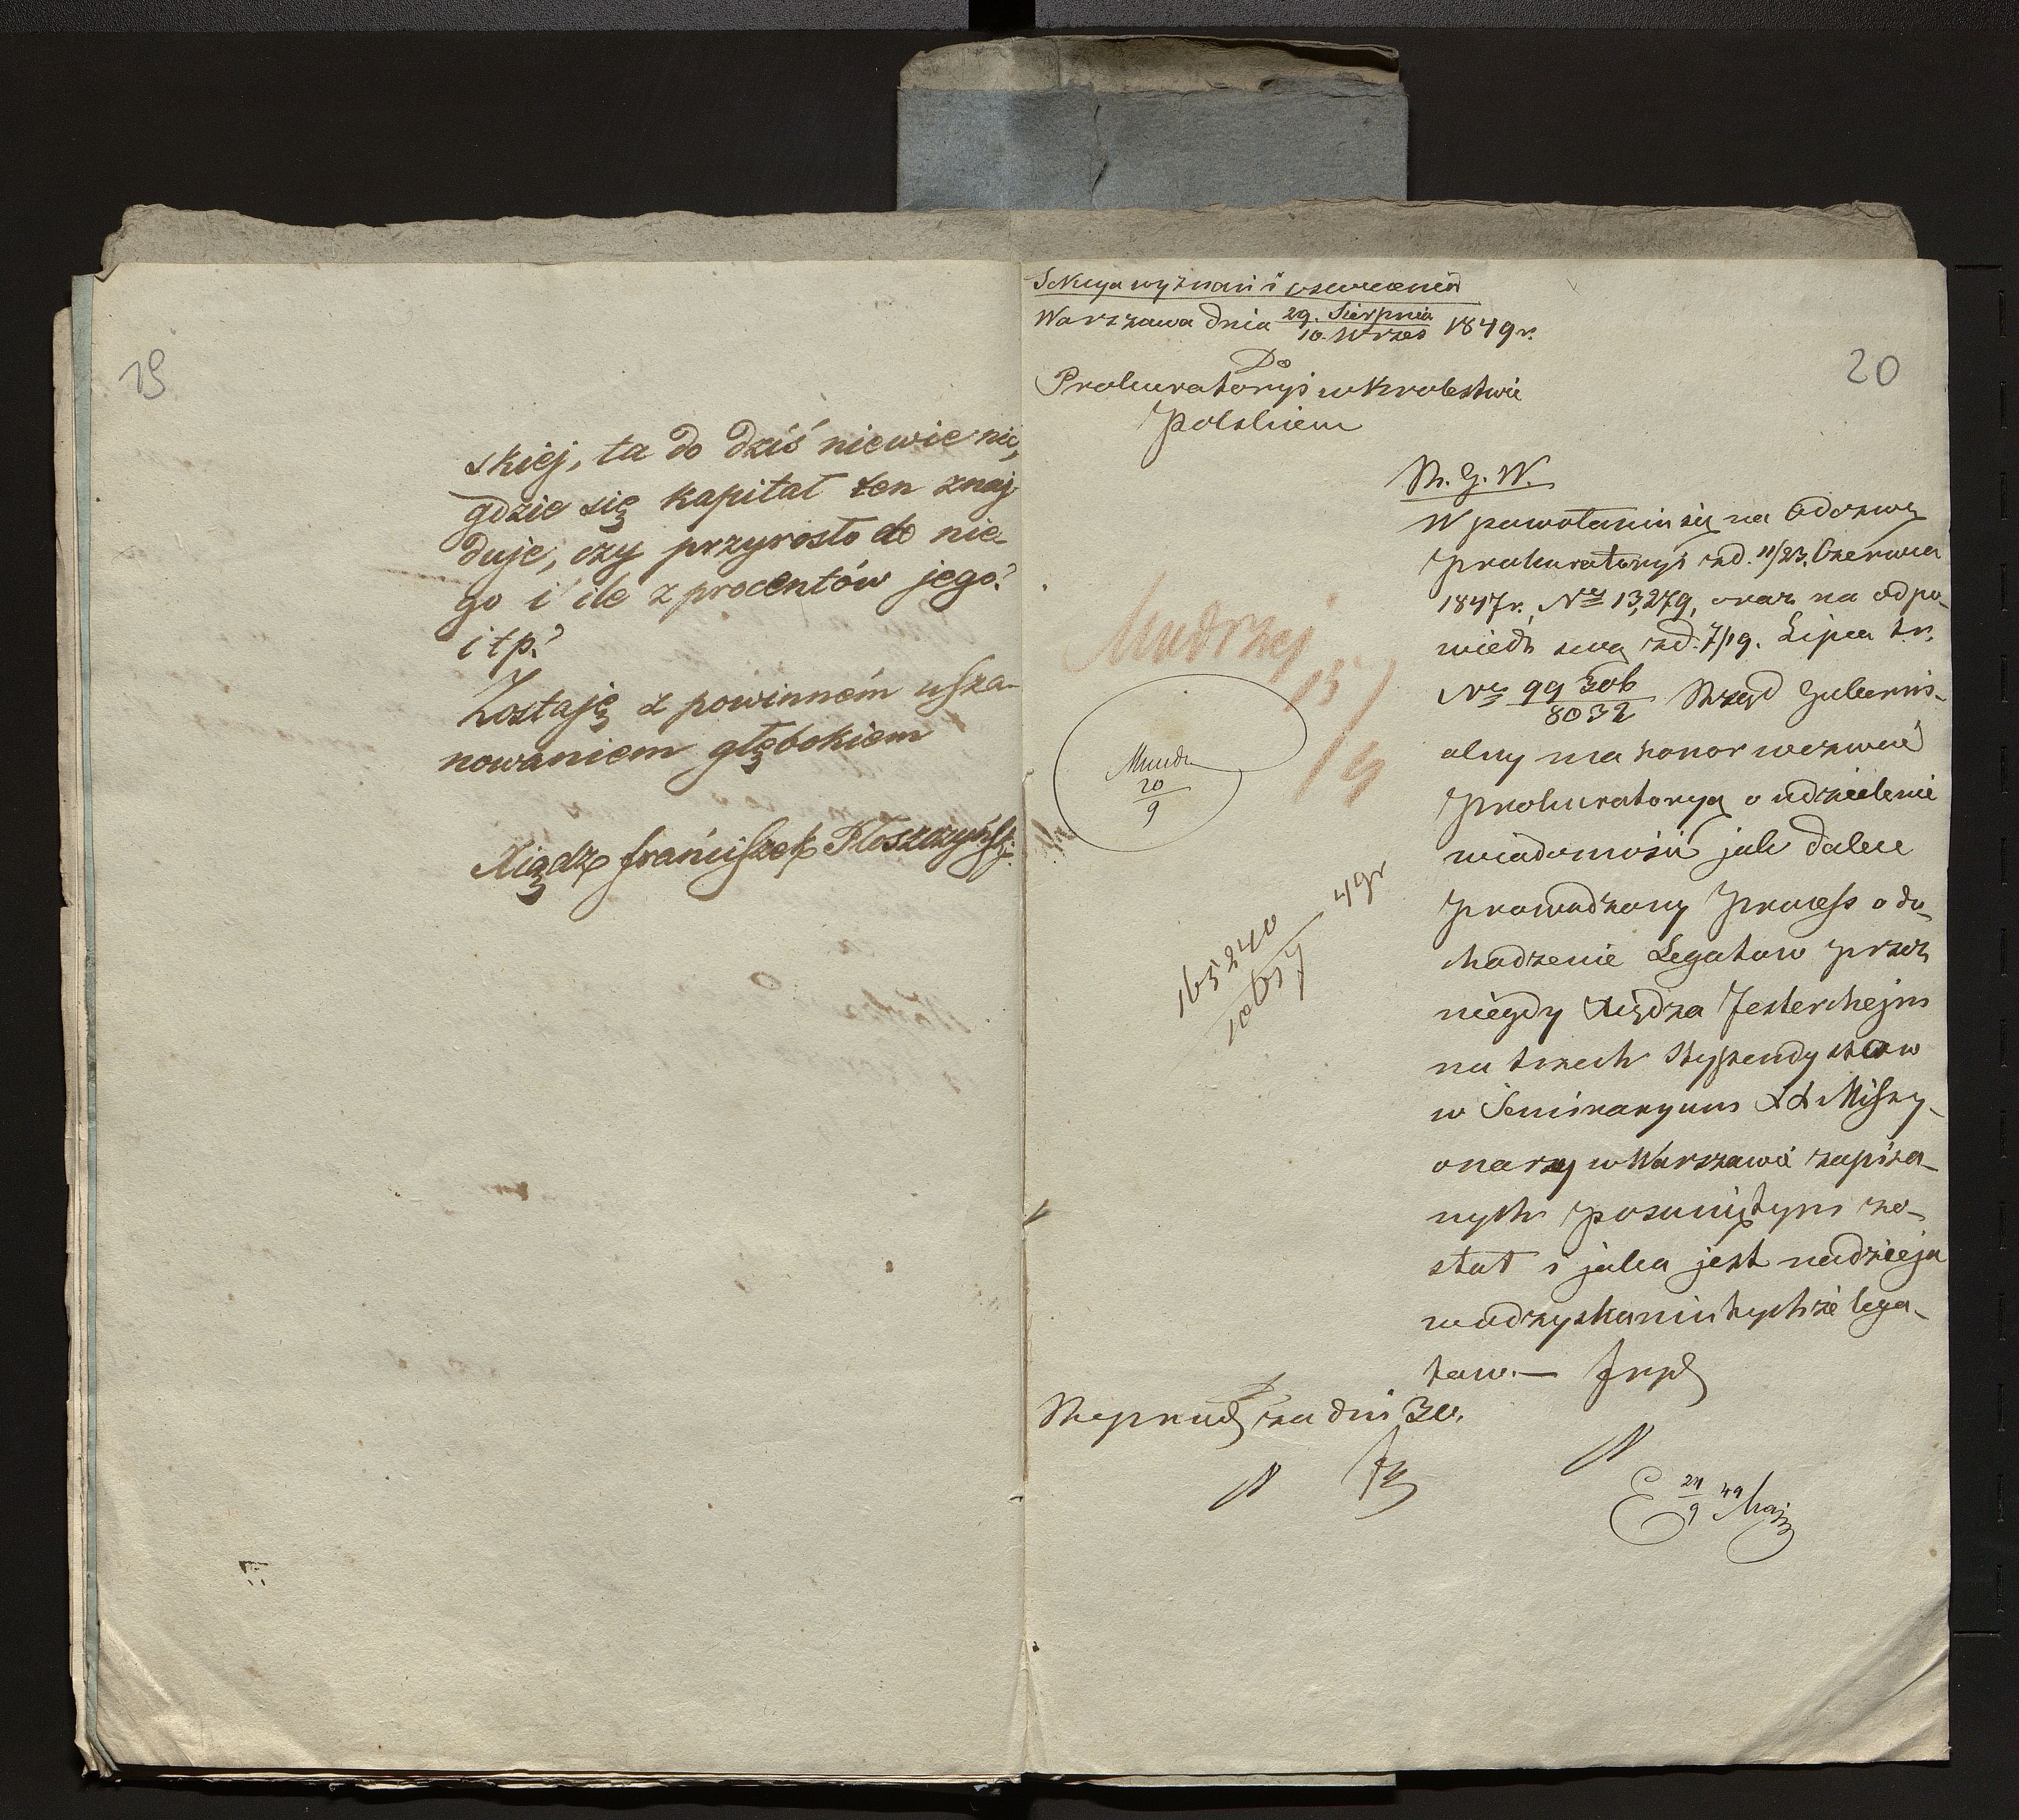 19
skiej, ta do dziś niewie nic,
gdzie się kapitał ten znaj
duje, czy przyrosło do nie-
go i ile z procentów jego?
itp?
Zostaję z powinném usza-
nowaniem głębokiem
Xiądz Franciszek Płoszczyński
20
Sekcya wyznań i oswiecenia
Warszawa dnia 29. Sierpnia / 10. Wrzes 1849 r.
Do
Prokuratoryi w Krolestwie
Polskiem
R. G. W.
W powołaniu się na Odezwę
Prokuratoryi z d. 11/23. Czerwca
1847 r. Nr 13,279, oraz na odpo-
wiedź swą z d. 7/19. Lipca t.r.
Nr 99306/8032 Rząd Guberni-
alny ma honor wezwać
Prokuratoryą o udzielenie
wiadomości jak dalece
prowadzony Process o do-
chodzenie Legatow przez
niegdy Xiędza Jesterchejm
na trzech Stypendystow
w Seminaryum XX Missy-
onarzy w Warszawie zapisa-
nych posuniętym zo-
stał i jaka jest nadzieja
w odzyskaniu tychże lega-
tow.—
Mund
20/9
165240
10657
49r
Reprod za dni 30.
E 24/9 49